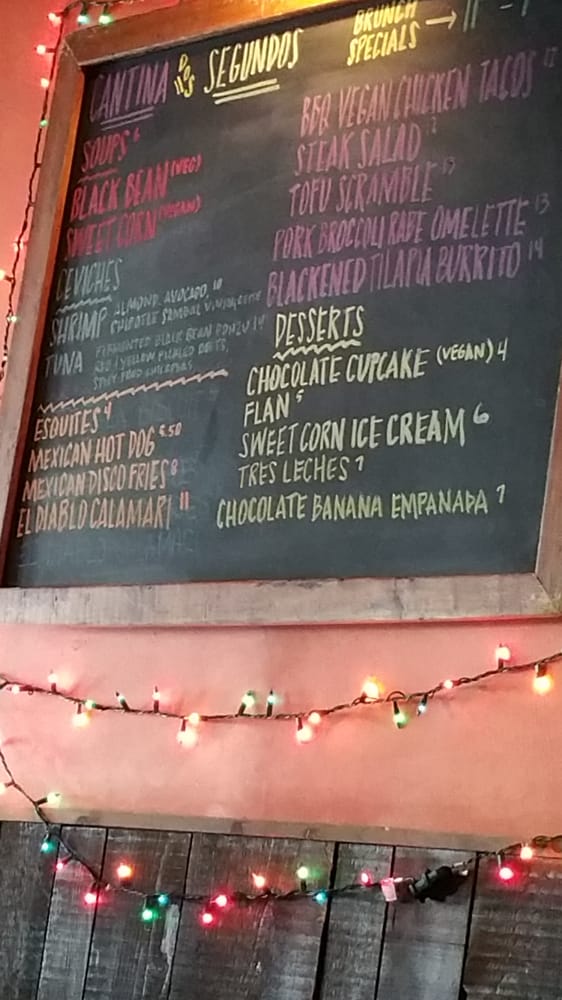 CANTINA DOS SEGUNDOS
BRUNCH
SPECIALS → 11 -
SOUPS 6
BLACK BEAN (VEG)
SWEET CORN (VEGAN)
CEVICHES
SHRIMP ALMOND, AVOCADO, 10
CHIPOTLE SAMBAL
TUNA FERMENTED BLACK BEAN PONZU 14
RED / YELLOW PICKLED BEETS,
SPICY FRIED CHICKPEAS
ESQUITES 4
MEXICAN HOT DOG 6.50
MEXICAN DISCO FRIES 8
EL DIABLO CALAMARI 11
BBQ VEGAN CHICKEN TACOS 12
STEAK SALAD
TOFU SCRAMBLE
PORK BROCCOLI RABE OMELETTE 13
BLACKENED TILAPIA BURRITO 14
DESSERTS
CHOCOLATE CUPCAKE (VEGAN) 4
FLAN 5
SWEET CORN ICE CREAM 6
TRES LECHES 7
CHOCOLATE BANANA EMPANADA 7